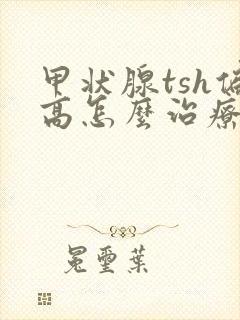 甲状腺tsh偏
高怎麼治療
冕璽葉